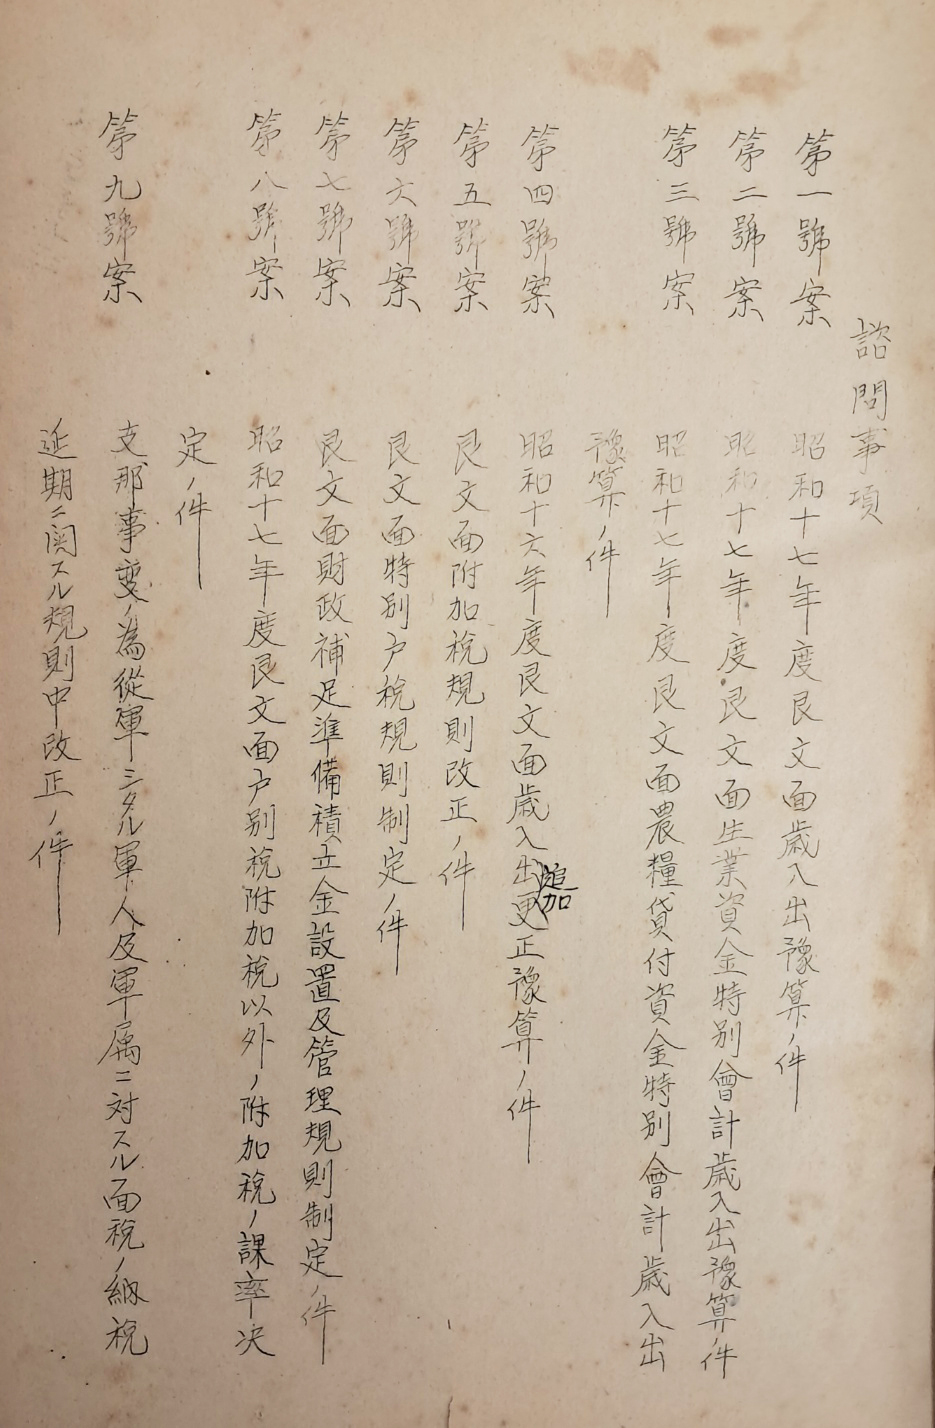 諮問事項
第一號案 昭和十七年度艮文面歳入出豫算ノ件
第二號案 昭和十七年度艮文面生業資金特別會計歳入出豫算ノ件
第三號案 昭和十七年度艮文面農糧貸付資金特別會計歳入出
豫算ノ件
第四號案 昭和十六年度艮文面歳入出追加更正豫算ノ件
第五號案 艮文面附加税規則改正ノ件
第六號案 艮文面特別戸税規則制定ノ件
第七號案 艮文面財政補足準備積立金設置及管理規則制定ノ件
第八號案 昭和十七年度艮文面戸別税附加税以外ノ附加税ノ課率决
定ノ件
第九號案 支那事変ノ為從軍シタル軍人及軍属ニ対スル面税ノ納税
延期ニ関スル規則中改正ノ件